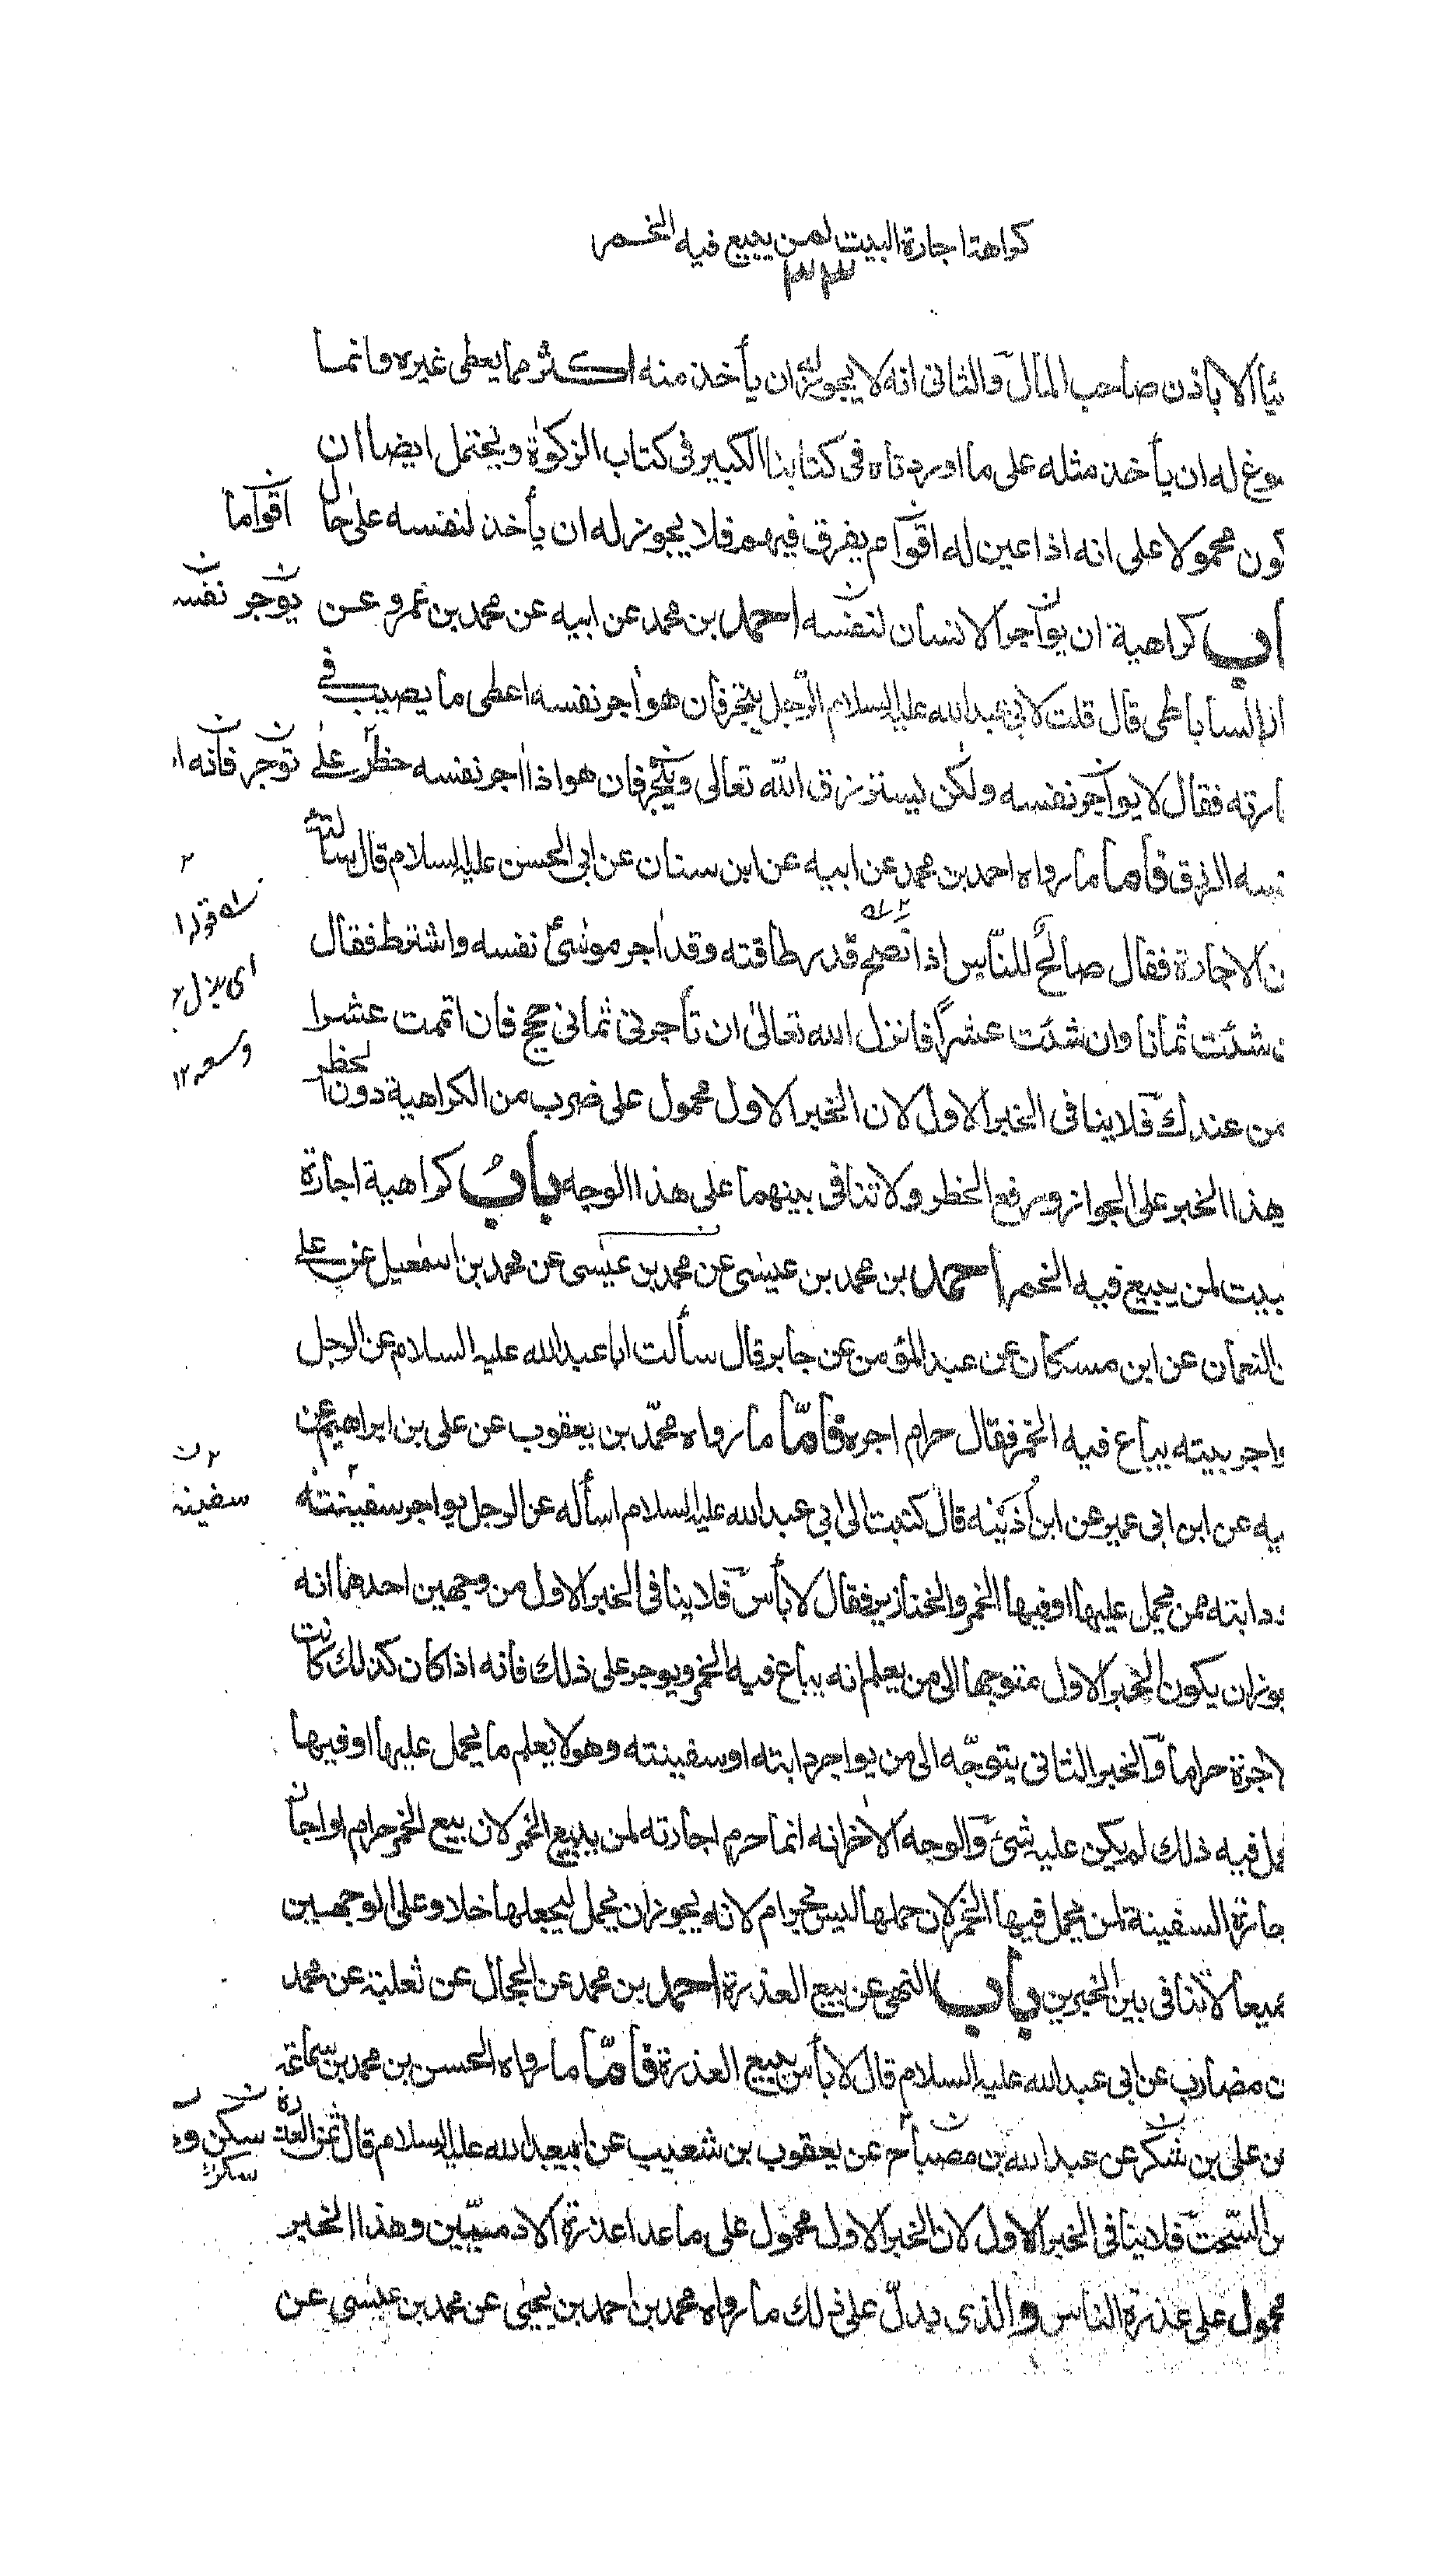 كراهة اجارة البيت لمن يبيع فيه الخمر
٣٣
الا باذن صاحب المال والثانى انه لا يجوز له ان يأخذ منه اكثر مما يعطى غيره وانما
له ان يأخذ مثله على ما اوردناه فى كتابنا الكبير فى كتاب الزكوة ويحتمل ايضا ان
محمولا على انه اذا عين له اقوام يفرق فيهم فلا يجوز له ان يأخذ لنفسه على حال
اقواما
كراهية ان يواجر الانسان لنفسه احمد بن محمد عن ابيه عن محمد بن عمرو عن
يوجر نفسه
الساباطى قال قلت لابى عبدالله عليه السلام الرجل يتجر فان هو اجر نفسه اعطى ما يصيب فى
فقال لا يواجر نفسه ولكن يسترزق الله تعالى ويتجر فان هو اذا اجر نفسه حظر على
توجر فانه
الرزق فاما ما رواه احمد بن محمد عن ابيه عن ابن سنان عن ابى الحسن عليه السلام قال سألته
قوله
عن الاجارة فقال صالح للناس اذا نصح قدر طاقته وقد اجر موسىٰ نفسه واشترط فقال
شئت ثمانا وان شئت عشرا فانزل الله تعالىٰ ان تأجرنى ثمانى حجج فان اتممت عشرا
من عندك فلا ينافى الخبر الاول لان الخبر الاول محمول على ضرب من الكراهية دون الحظر
هذا الخبر على الجواز ورفع الحظر ولا تنافى بينهما على هذا الوجه باب كراهية اجارة
لمن يبيع فيه الخمر احمد بن محمد بن عيسى عن محمد بن عيسى عن محمد بن اسمعيل عن على
النعمان عن ابن مسكان عن عبد المؤمن عن جابر قال سألت ابا عبدالله عليه السلام عن الرجل
بيته يباع فيه الخمر فقال حرام اجره فامّا ما رواه محمّد بن يعقوب عن على بن ابراهيم عن
عن ابن ابى عمير عن ابن اُذَينه قال كتبت الى ابى عبدالله عليه السلام اسأله عن الرجل يواجر سفينته
سفينة
دابته ممن يحمل عليها او فيها الخمر والخنازير فقال لا بأس فلا ينافى الخبر الاول من وجهين احدهما انه
ان يكون الخبر الاول متوجها الى من يعلم انه يباع فيه الخمر ويوجر على ذلك فانه اذا كان كذلك كانت
الاجرة حراما والخبر الثانى يتوجّه الى من يواجر دابته او سفينته وهو لا يعلم ما يحمل عليها او فيها
فيه ذلك لم يكن عليه شئ والوجه الاخر انه انما حرم اجارته لمن يبيع الخمر لان بيع الخمر حرام واجاز
السفينة لمن يحمل فيها الخمر لان حملها ليس بحرام لانه يجوز ان يحمل ليجعلها خلا وعلى الوجهين
لا تنافى بين الخبرين باب النهى عن بيع العذرة احمد بن محمد عن الحجال عن ثعلبة عن محمد
مضارب عن ابى عبدالله عليه السلام قال لا بأس ببيع العذرة فامّا ما رواه الحسن بن محمد بن سماعة
على بن شكر عن عبدالله بن مصباح عن يعقوب بن شعيب عن ابيعبدالله عليه السلام قال ثمن العذرة
سكن
السحت فلا ينافى الخبر الاول لان الخبر الاول محمول على ما عدا عذرة الادميّين وهذا الخبر
محمول على عذرة الناس والذى يدلّ على ذلك ما رواه محمد بن احمد بن يحيى عن محمد بن عيسى عن